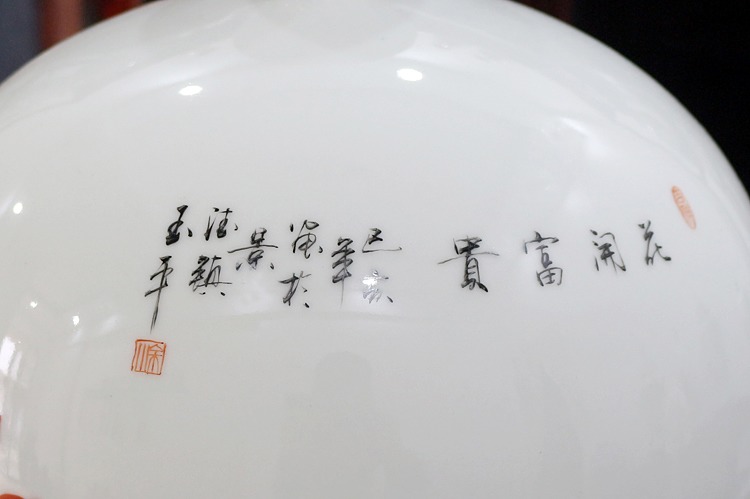 花開富貴
己亥
年
寫於
景
德鎮
玉平